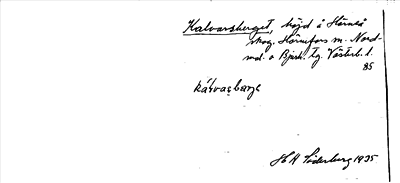 Kalvarsberget, höjd å Hörneå
skog. Hörnefors m. Nord-
mal. o Bjurh. tg. Västerb. l.
85
kálvaṣbærje
H A Söderberg 1935